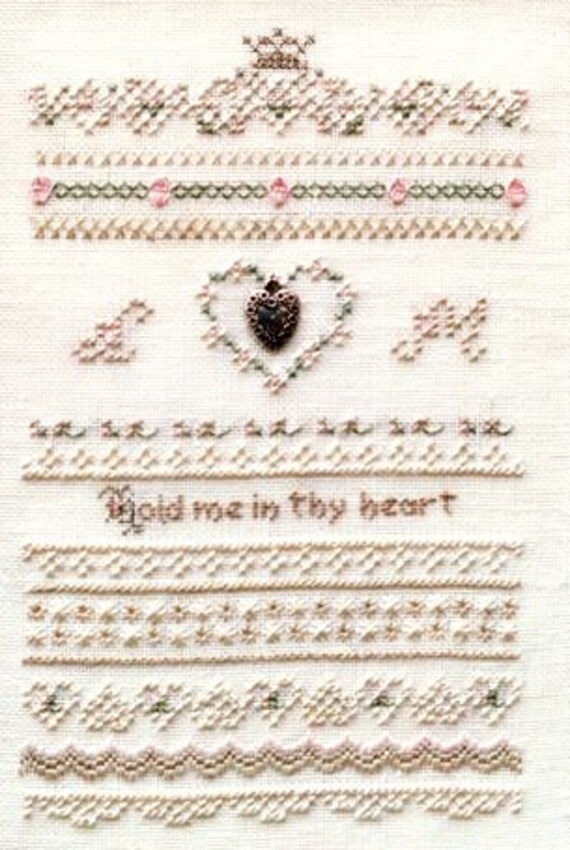 L M
Hold me in thy heart